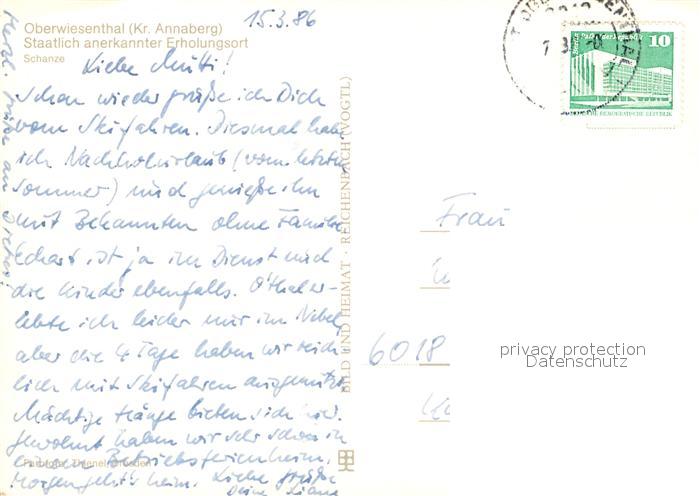 15.3.86
Oberwiesenthal (Kr. Annaberg)
Staatlich anerkannter Erholungsort
Schanze
Liebe Mutti!
Schon wieder grüße ich Dich
vom Skifahren. Diesmal habe
ich Nachholurlaub (vom letzten
Sommer) und genieße ihn
mit Bekannten ohne Familie
ist ja im Dienst und
die Kinder ebenfalls. O'thal er-
lebte ich leider nur im Nebel
aber die 4 Tage haben wir reich
lich mit Skifahren ausgenützt.
Mächtige Hänge bieten sich hier.
gewohnt haben wir sehr schön in
einem Betriebsferienheim.
Morgen geht's heim. Liebe Grüße
Deine
Herzl. Grüße an
BILD UND HEIMAT · REICHENBACH (VOGTL)
10
Berlin Palast der Republik
DEUTSCHE DEMOKRATISCHE REPUBLIK
Frau
6018
privacy protection
Datenschutz